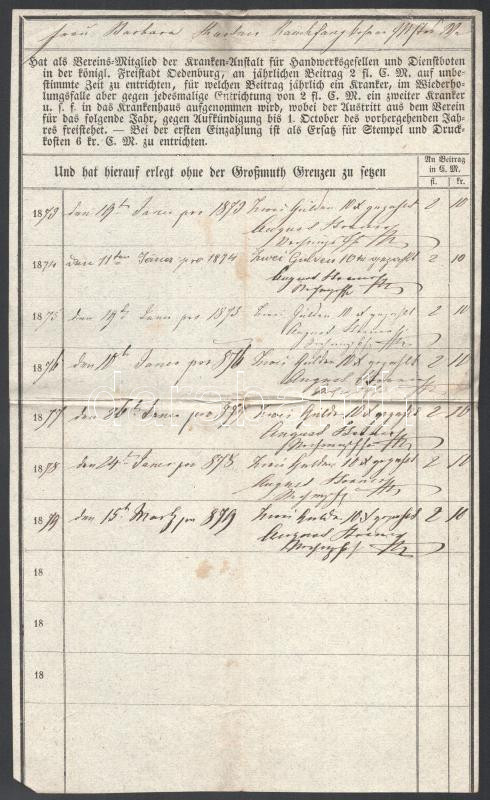 Frau Barbara
Hat als Vereins-Mitglied der Kranken-Anstalt für Handwerksgesellen und Dienstboten
in der königl. Freistadt Oedenburg, an jährlichen Beitrag 2 fl. C. M. auf unbe-
stimmte Zeit zu entrichten, für welchen Beitrag jährlich ein Kranker, im Wiederho-
lungsfalle aber gegen jedesmalige Entrichtung von 2 fl. C. M. ein zweiter Kranker
u. s. f. in das Krankenhaus aufgenommen wird, wobei der Austritt aus dem Verein
für das folgende Jahr, gegen Aufkündigung bis 1. October des vorhergehenden Jah-
res freistehet. — Bei der ersten Einzahlung ist als Ersatz für Stempel und Druck-
kosten 6 kr. C. M. zu entrichten.
Und hat hierauf erlegt ohne der Großmuth Grenzen zu setzen
An Beitrag
in C. M.
fl. kr.
1873 den 19t Janer pro 1873 Zwei Gulden 10 x gezahlt 2 10
August
1874 den 11ten Janer pro 1874 Zwei Gulden 10 x gezahlt 2 10
August
1875 den 19t Janer pro 1875 Zwei Gulden 10 x gezahlt 2 10
August
1876 den 18t Janer pro 876 Zwei Gulden 10 x gezahlt 2 10
August
1877 den 26t Janer pro 877 Zwei Gulden 10 x gezahlt 2 10
August
1878 den 24t Janer pro 878 Zwei Gulden 10 x gezahlt 2 10
August
1879 den 15t Marz pro 879 Zwei Gulden 10 x gezahlt 2 10
August
18
18
18